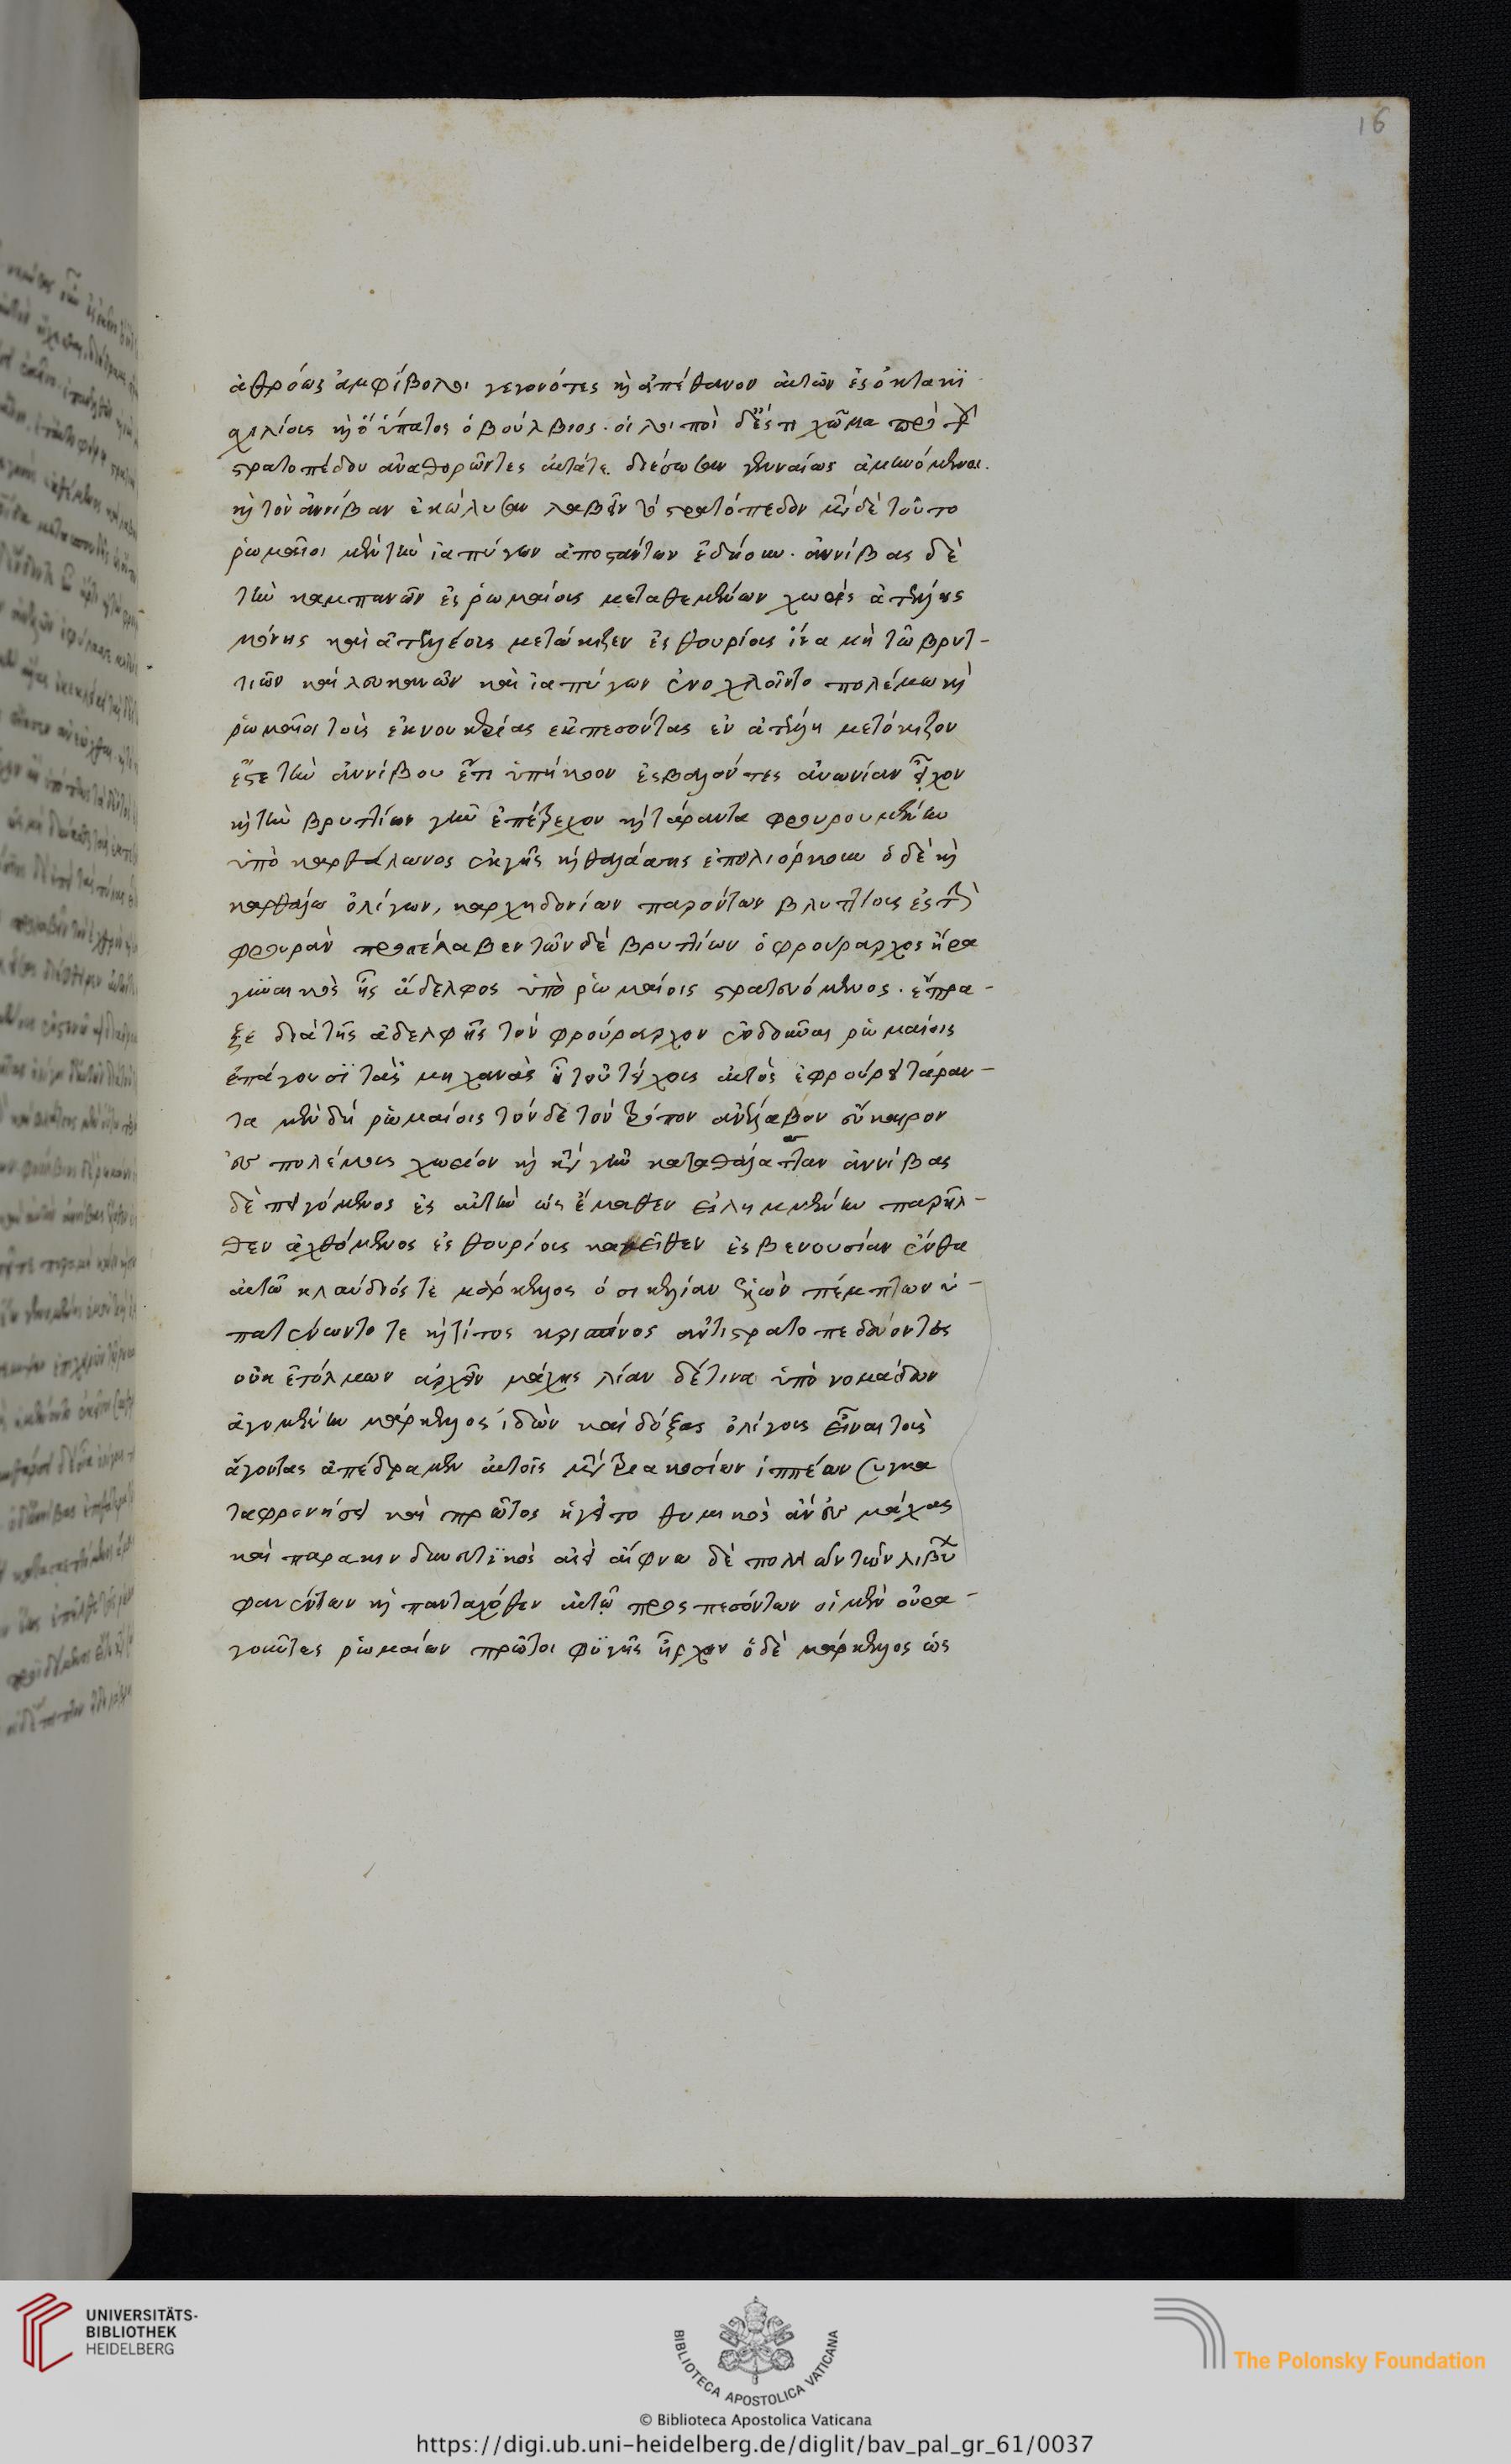 16
ἀθρόως ἀμφίβολοι γεγονότες κὶ ἀπέθανον αὐτῶν ἐς ὀκτακι
χιλίους κὶ ὁ ὕπατος ὁ βούλβιος. οἱ λοιποὶ δ' ἔς τι χῶμα πρὸ τοῦ
στρατοπέδου ἀναθορῶντες αὐτάτε διέσωσαν γενναίως ἀμυνόμενοι.
κὶ τὸν ἀννίβαν ἐκώλυσαν λαβεῖν τὸ στρατόπεδον μετὰ δὲ τοῦτο
ῥωμαῖοι μὲν τὴν ἰαπύγων ἀποστάντων ἐδῄουν. ἀννίβας δὲ
τὴν καμπανῶν ἐς ῥωμαίους μεταθεμένων χωρὶς ἀτέλλης
μόνης καὶ ἀτελλέους μετώκιζεν ἐς θουρίους ἵνα μὴ τῶ βρυτ-
τιῶν καὶ λουκανῶν καὶ ἰαπύγων ἐνοχλοῖντο πολέμω κὶ
ῥωμαῖοι τοὺς ἐκ νουκερίας ἐκπεσόντας ἐν ἀτέλλη μετόκιζον
ἔς τε τὴν ἀννίβου ἔτι ὑπήκοον ἐσβαλόντες αὐωνίαν εἷλον
κὶ τὴν βρυττίων γῆν ἐπέτρεχον κὶ τάραντα φρουρουμένην
ὑπὸ καρθάλωνος ἐκ γῆς κὶ θαλάσσης ἐπολιόρκουν ὁ δὲ κὶ
καρθάλω ὀλίγων, καρχηδονίων παρόντων βρυττίους ἐς τὴν
φρουρὰν προσέλαβεν τῶν δὲ βρυττίων ὁ φρούραρχος ἤρα
γυναικὸς ἧς ἄδελφος ὑπὸ ῥωμαίοις στρατευόμενος. ἔπρα-
ξε διὰ τῆς ἀδελφῆς τὸν φρούραρχον ἐνδοῦναι ῥωμαίοις
ἐπάγουσϊ τὰς μηχανὰς ᾗ τοῦ τείχους αὐτὸς ἐφρούρει τάραν-
τα μὲν δὴ ῥωμαίοις τόνδε τὸν τρόπον ἀνέλαβον εὔκαιρον
ἐς πολέμους χωρίον κὶ κατὰ γῆν κατὰ θάλατταν ἀννίβας
δὲ πειγόμενος ἐς αὐτὴν ὡς ἔμαθεν εἰλημμένην παρῆλ-
θεν ἀχθόμενος ἐς θουρίους κακεῖθεν ἐς βενουσίαν ἔνθα
αὐτῶ κλαύδιός τε μάρκελλος ὁ σικελίαν ἑλὼν πέμπτον ὑ-
πατεύων τότε κὶ τίτος κρισπῖνος ἀντιστρατοπεδεύοντες
οὐκ ἐτόλμων ἄρχειν μάχης λίαν δέ τινα ὑπὸ νομάδων
ἀγομένην μάρκελλος ἰδὼν καὶ δόξας ὀλίγους εἶναι τοὺς
ἄγοντας ἀπέδραμεν αὐτοῖς μετὰ τριακοσίων ἱππέων συγκα
ταφρονήσει καὶ πρῶτος ἡγεῖτο θυμικὸς ὢν ἐς μάχας
καὶ παρακινδυνευτϊκὸς αἰεὶ ἄφνω δὲ πολλῶν τῶν λιβύων
φανέντων κὶ πανταχόθεν αὐτῷ προσπεσόντων οἱ μὲν οὐρα-
γοῦντες ῥωμαίων πρῶτοι φϋγῆς ἦρχον ὁ δὲ μάρκελλος ὡς
UNIVERSITÄTS-
BIBLIOTHEK
HEIDELBERG
BIBLIOTECA APOSTOLICA VATICANA
The Polonsky Foundation
© Biblioteca Apostolica Vaticana
https://digi.ub.uni-heidelberg.de/diglit/bav_pal_gr_61/0037